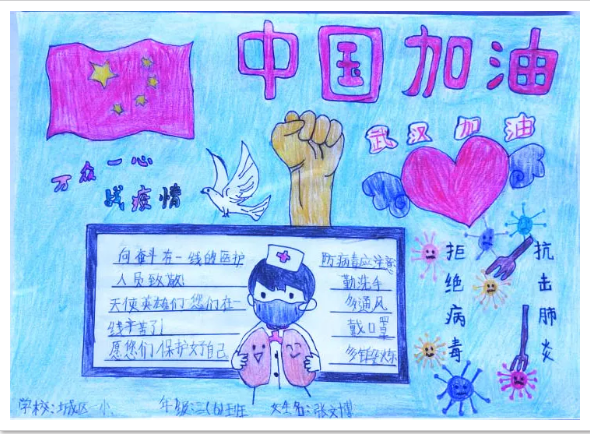 中国加油
武汉加油
万众一心
战疫情
向奋斗在一线的医护
人员致敬!
天使英雄们您们在一
线辛苦了!
愿您们保护好自己
防病毒应注意
勤洗手
多通风
戴口罩
多锻炼
拒绝病毒
抗击肺炎
学校:城区一小
年级:三(6)班
姓名:张文博